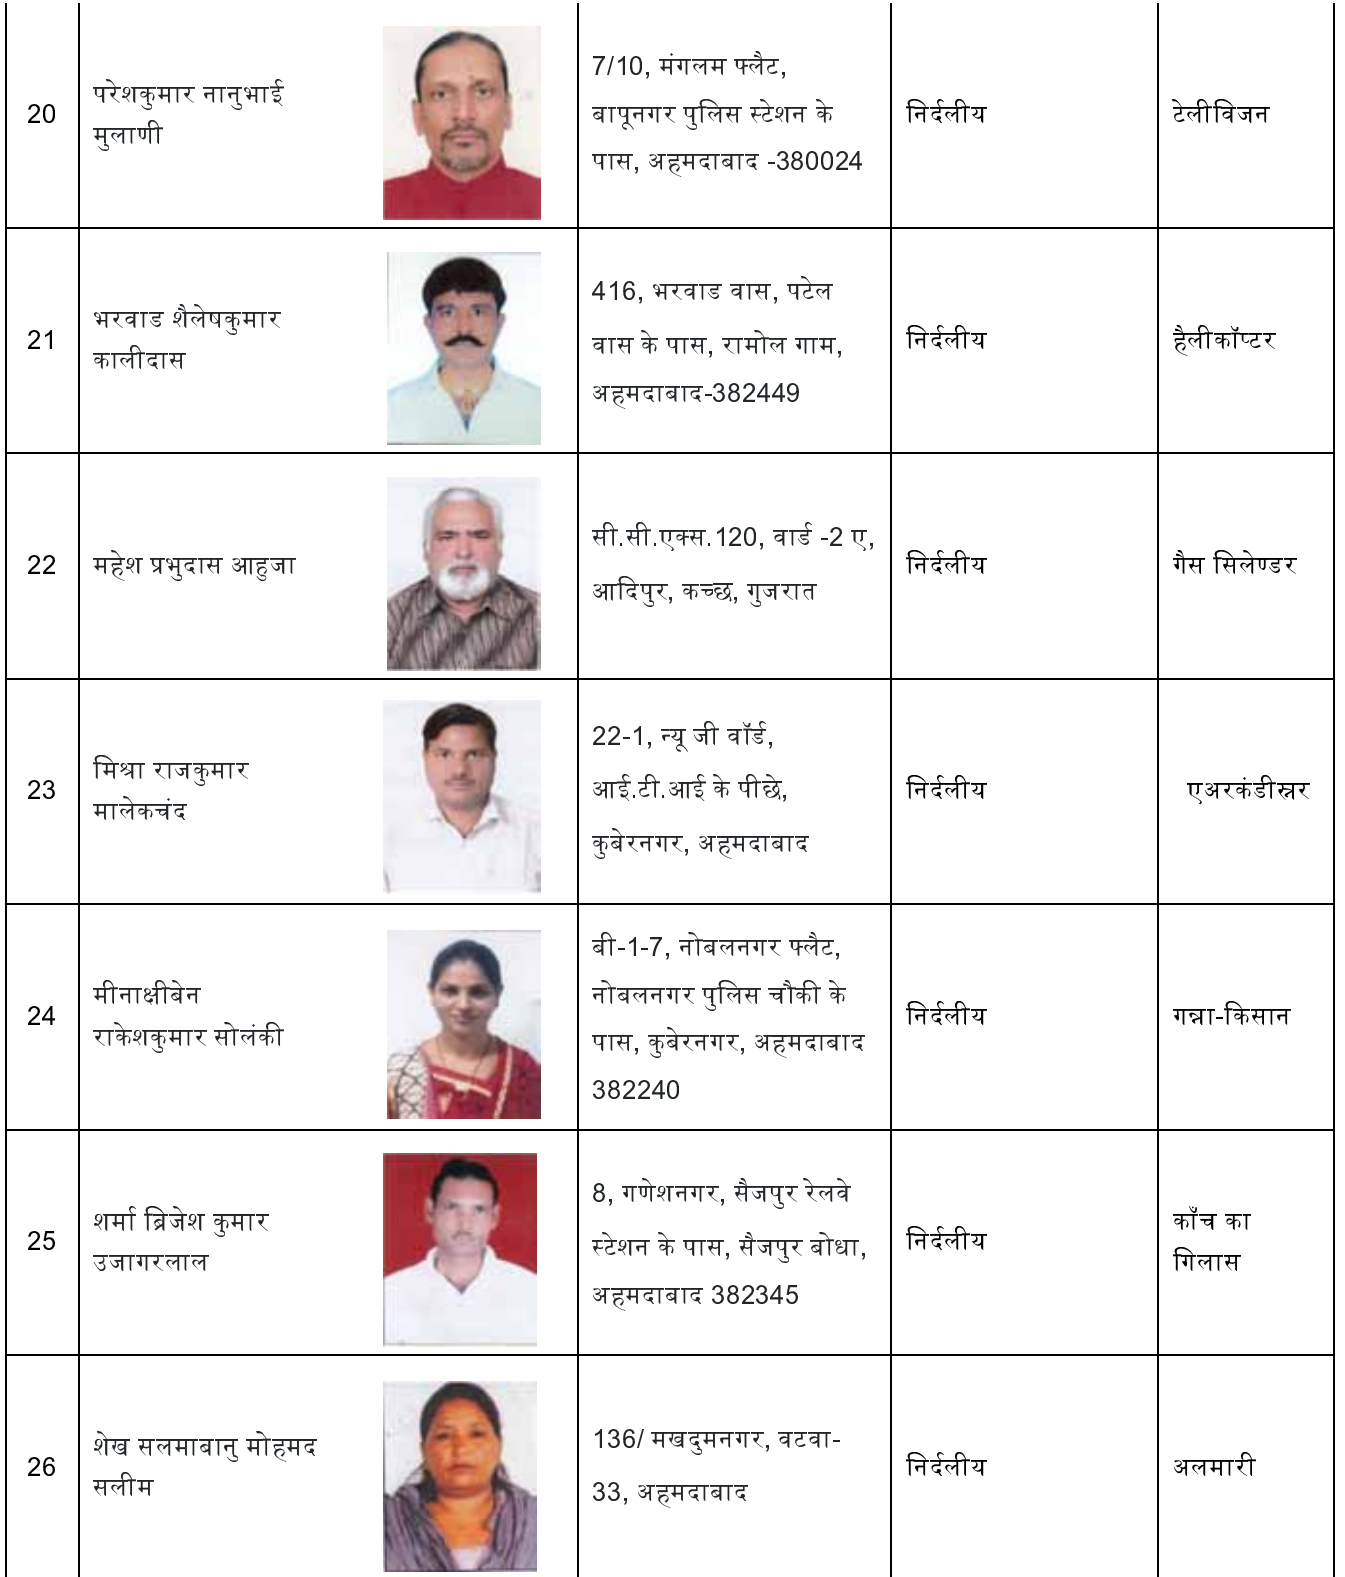 20
परेशकुमार नानुभाई
मुलाणी
7/10, मंगलम फ्लैट,
बापूनगर पुलिस स्टेशन के
पास, अहमदाबाद -380024
निर्दलीय
टेलीविजन
21
भरवाड शैलेषकुमार
कालीदास
416, भरवाड वास, पटेल
वास के पास, रामोल गाम,
अहमदाबाद-382449
निर्दलीय
हैलीकॉप्टर
22
महेश प्रभुदास आहुजा
सी.सी.एक्स.120, वार्ड -2 ए,
आदिपुर, कच्छ, गुजरात
निर्दलीय
गैस सिलेण्डर
23
मिश्रा राजकुमार
मालेकचंद
22-1, न्यू जी वॉर्ड,
आई.टी.आई के पीछे,
कुबेरनगर, अहमदाबाद
निर्दलीय
एअरकंडीस्नर
24
मीनाक्षीबेन
राकेशकुमार सोलंकी
बी-1-7, नोबलनगर फ्लैट,
नोबलनगर पुलिस चौकी के
पास, कुबेरनगर, अहमदाबाद
382240
निर्दलीय
गन्ना-किसान
25
शर्मा ब्रिजेश कुमार
उजागरलाल
8, गणेशनगर, सैजपुर रेलवे
स्टेशन के पास, सैजपुर बोधा,
अहमदाबाद 382345
निर्दलीय
काँच का
गिलास
26
शेख सलमाबानु मोहमद
सलीम
136/ मखदुमनगर, वटवा-
33, अहमदाबाद
निर्दलीय
अलमारी